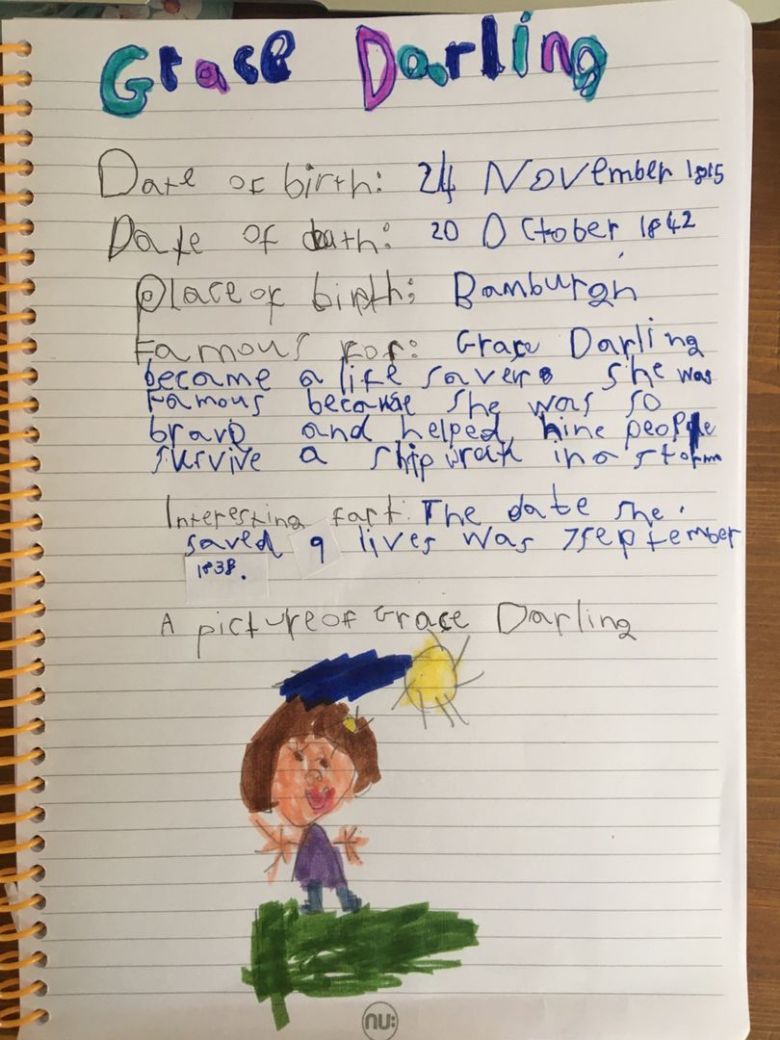 Grace Darling
Date of birth: 24 November 1815
Date of death: 20 October 1842
Place of birth: Bamburgh
Famous for: Grace Darling
became a life saver. she was
famous because she was so
brave and helped nine people
survive a ship wrak in a storm
Interesting fact: The date she
saved 9 lives was 7 september
1838.
A picture of Grace Darling
nu: